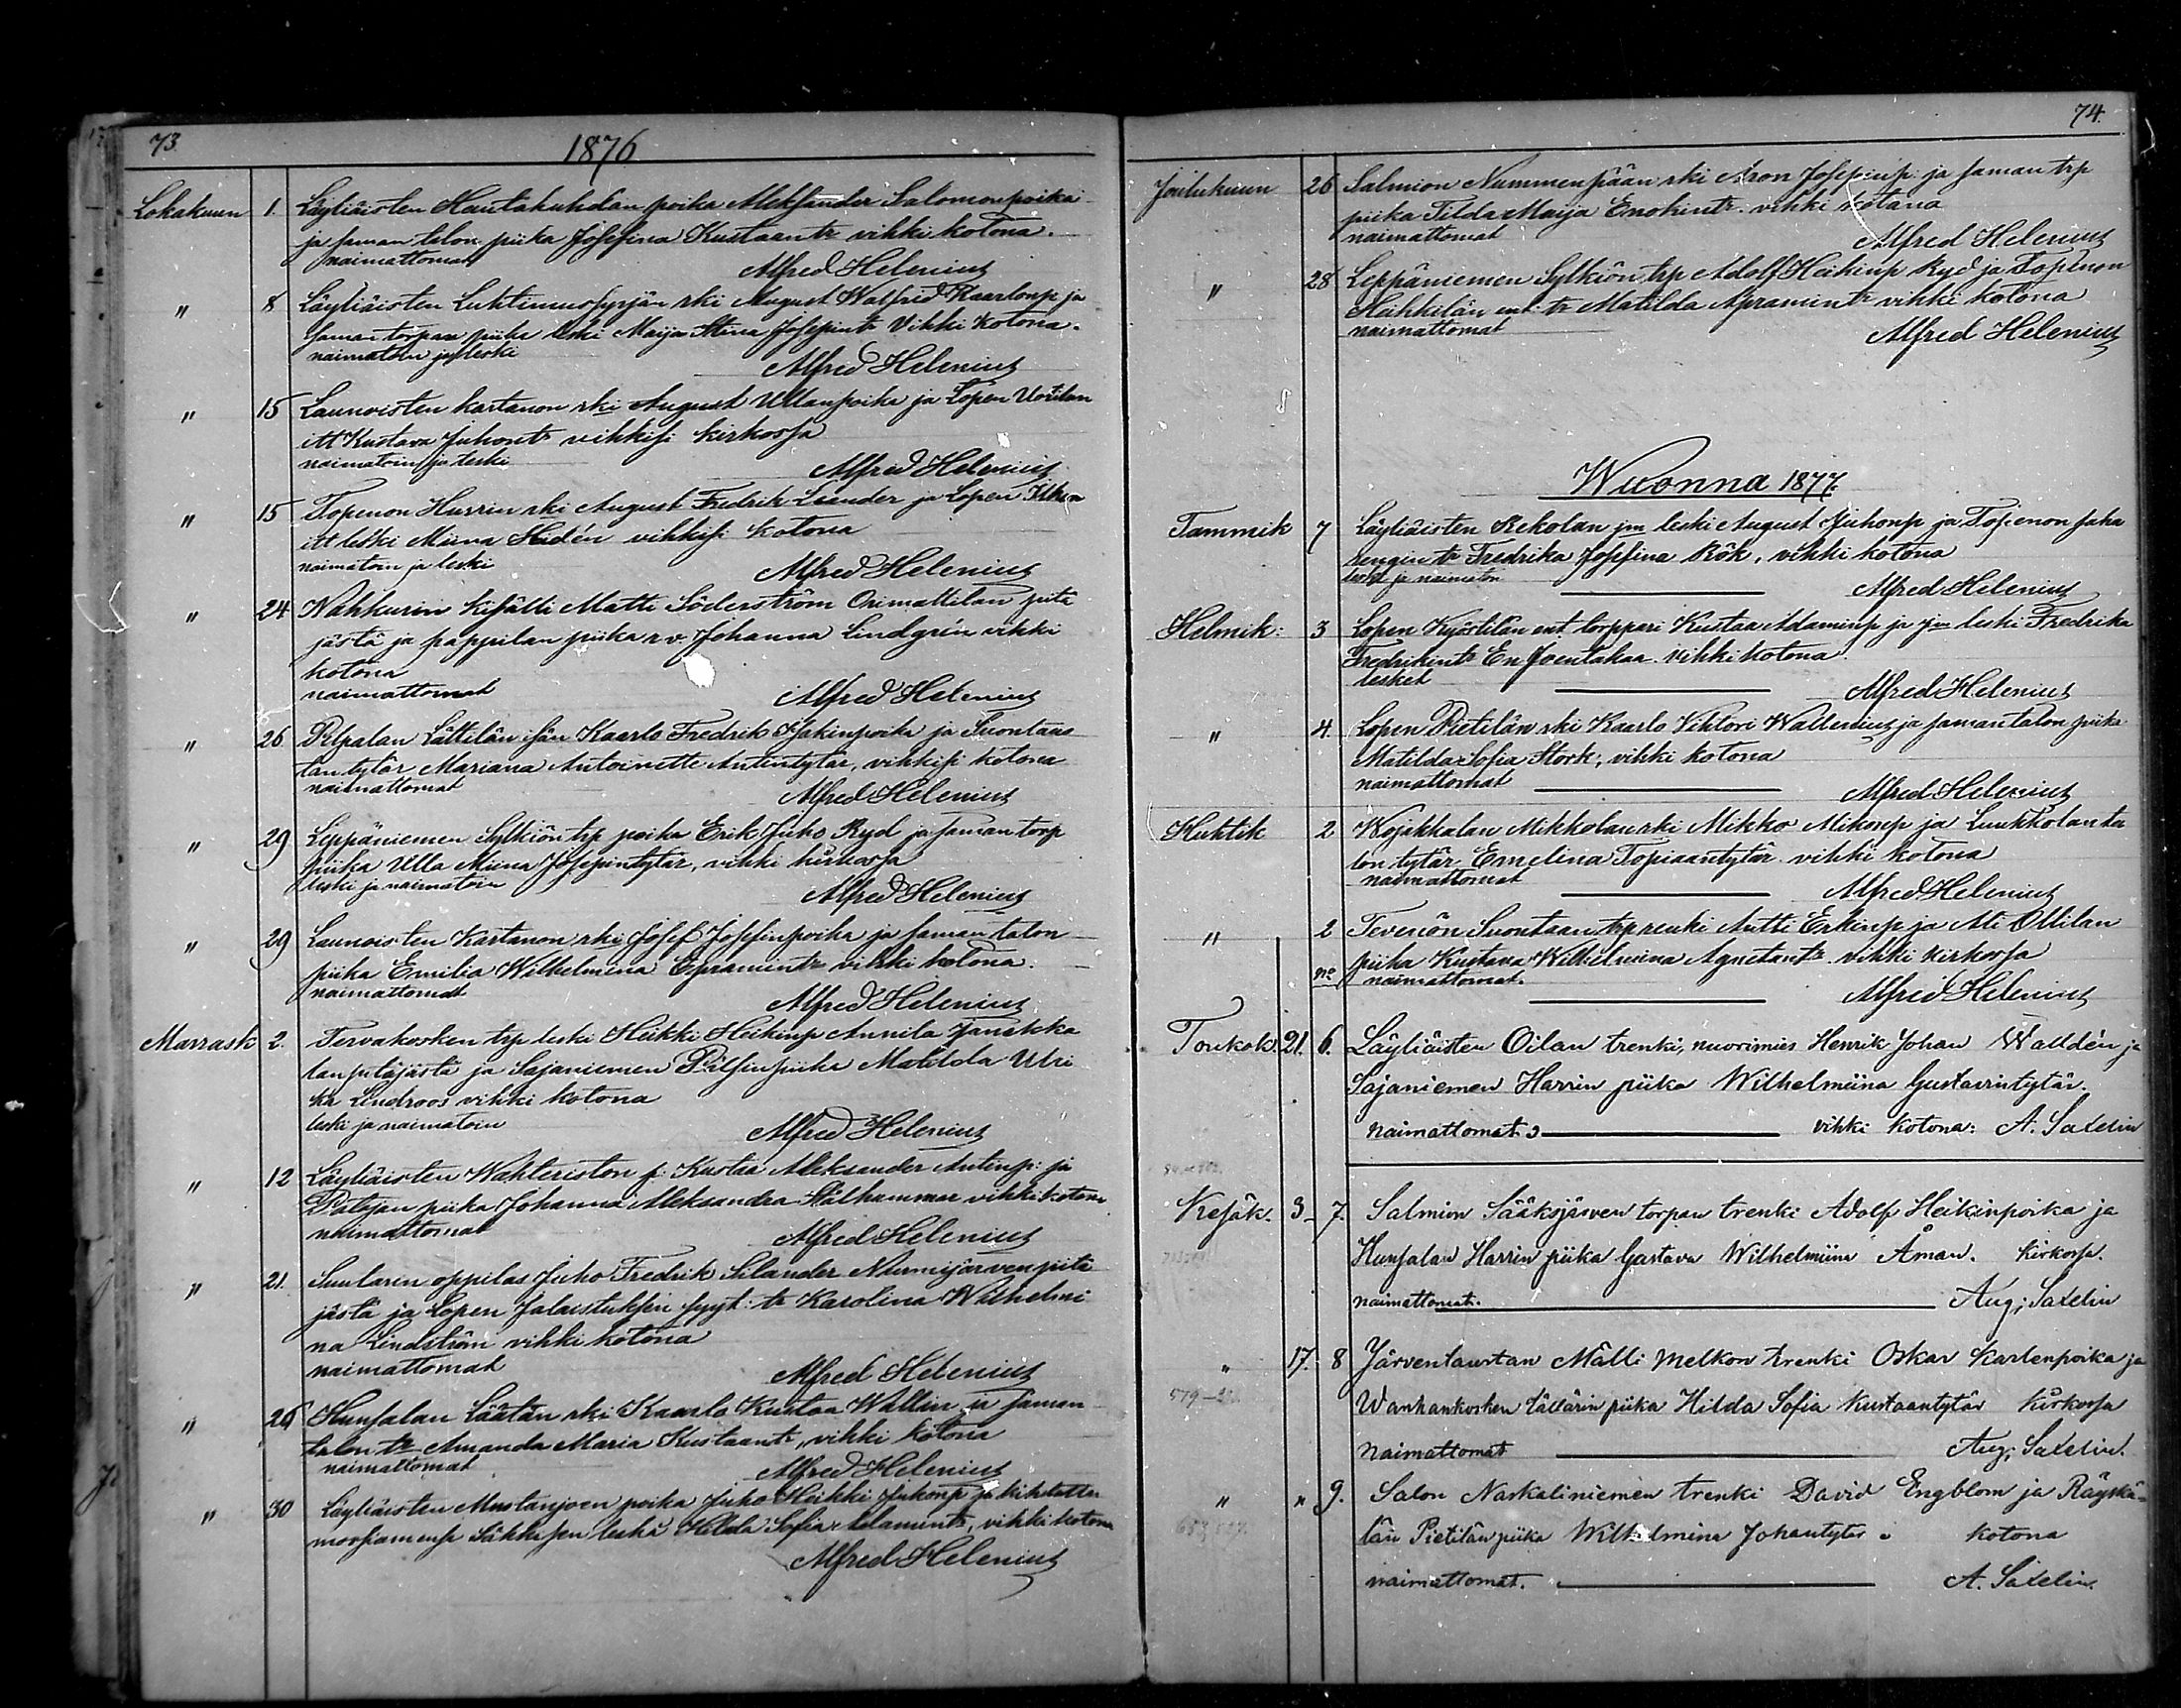 73
1876
Lokakuun 1. Läyliäisten Hautakuhdan poika Aleksander Salomonpoika
ja saman talon piika Josefina Kustaantr vihki kotona.
naimattomat
Alfred Helenius
" 8 Läyliäisten rki August Walfrid Kaarlonp ja
saman torpan piika leski Maija Stina Josepintr vihki kotona.
naimatoin ja leski
Alfred Helenius
" 15 Launoisten kartanon rki August Ullanpoika ja Lopen Uotilan
itt Kustava Juhontr vihkisi kirkossa
naimatoin ja leski
Alfred Helenius
" 15 Topenon Hurrin rki August Fredrik Leander ja Lopen
itt leski Miina Hidén vihkisi kotona
naimatoin ja leski
Alfred Helenius
" 24 Nahkurin kisälli Matti Söderström Orimattilan pitä
jästä ja pappilan piika r.v. Johanna Lindgrén vihki
kotona
naimattomat
Alfred Helenius
" 26 Pilpalan Lättilän isän Kaarlo Fredrik Isakinpoika ja Suontaus
tan tytär Mariana Antoinette Antintytär, vihkisi kotona
naimattomat
Alfred Helenius
" 29 Leppäniemen Sylkiön trp poika Erik Juho Ryd ja saman torp
piika Ulla Miina Josepintytär, vihki kirkossa
leski ja naimatoin
Alfred Helenius
" 29 Launoisten Kartanon rki Josef Josefinpoika ja saman talon
piika Emilia Wilhelmina Epramintr vihki kotona.
naimattomat
Alfred Helenius
Marrask 2. Tervakosken trp leski Heikki Heikinp Annila Janakka
lan pitäjästä ja Sajaniemen Pilsin piika Matilda Ulri
ka Lindroos vihki kotona
leski ja naimatoin
Alfred Helenius
" 12 Läyliäisten Wahteriston p. Kustaa Aleksander Antinp: ja
piika Johanna Aleksandra Stålhammar vihki kotona
naimattomat
Alfred Helenius
" 21. Suutarin oppilas Juho Fredrik Silander Nurmijärven pitä
jästä ja Lopen tr Karolina Wilhelmi
na Lindström vihki kotona
naimattomat
Alfred Helenius
" 26 Hunsalan Läätän rki Kaarlo Kustaa Wallin ja saman
talon tr Amanda Maria Kustaantr, vihki kotona
naimattomat
Alfred Helenius
" 30 Läyliäisten Mustanjoen poika Juho Heikki Juhonp ja kihlattu
morsiamensa leski Hilda Sofia Adamintr, vihki kotona
Alfred Helenius
74.
Joulukuun 26 Salmion Nummenpään rki Aron Josepinp. ja saman trp
piika Tilda Maija Enokintr. vihki kotona
naimattomat
Alfred Helenius
" 28 Leppäniemen Sylkiön trp Adolf Heikinp Ryd ja Topenon
Heikkilän ent. tr Matilda Apramintr vihki kotona
naimattomat
Alfred Helenius
Wuonna 1877.
Tammik 7 Läyliäisten Rekolan jm leski August Juhonp ja Topenon saha
rengin tr Fredrika Josefina Rök, vihki kotona
leski ja naimaton
Alfred Helenius
Helmik: 3 Lopen Kyöstilän ent torppari Kustaa Adaminp ja jm leski Fredrika
Fredrikintr En Joentakaa vihki kotona.
lesket
Alfred Helenius
" 4 Lopen Pietilän rki Kaarlo Vihtori Wallenius ja saman talon piika
Matilda Sofia Stork, vihki kotona
naimattomat
Alfred Helenius
Huhtik 2 Wojakkalan Mikkolan rki Mikko Mikonp ja Luukkolan ta
lon tytär Emelina Topiaantytär vihki kotona
naimattomat
Alfred Helenius
" 2 Tevenön Suontaan trp renki Antti Erkinp ja Ali Ollilan
piika Kustava Wilhelmiina Agnetantr. vihki kirkossa
no naimattomat.
Alfred Helenius
Toukok. 21. 6. Läyliäisten Oilan trenki, nuorimies Henrik Johan Walldén ja
Sajaniemen Harrin piika Wilhelmiina Gustavintytär.
naimattomat. vihki kotona: A. Saxelin
Kesäk. 3 7. Salmion Sääksjärven torpan trenki Adolf Heikinpoika ja
Hunsalan Harrin piika Gustava Wilhelmiina Åman. kirkossa.
naimattomat. Aug; Saxelin
" 17. 8 Järventaustan Mälli Melkon trenki Oskar Karlenpoika ja
579
Wanhankosken Lällärin piika Hilda Sofia Kustaantytär kirkossa
naimattomat Aug; Saxelin.
" " 9. Salon Naskaliniemen trenki David Engblom ja Räyskä-
län Pietilän piika Wilhelmina Johantytär " kotona
naimattomat. A. Saxelin.